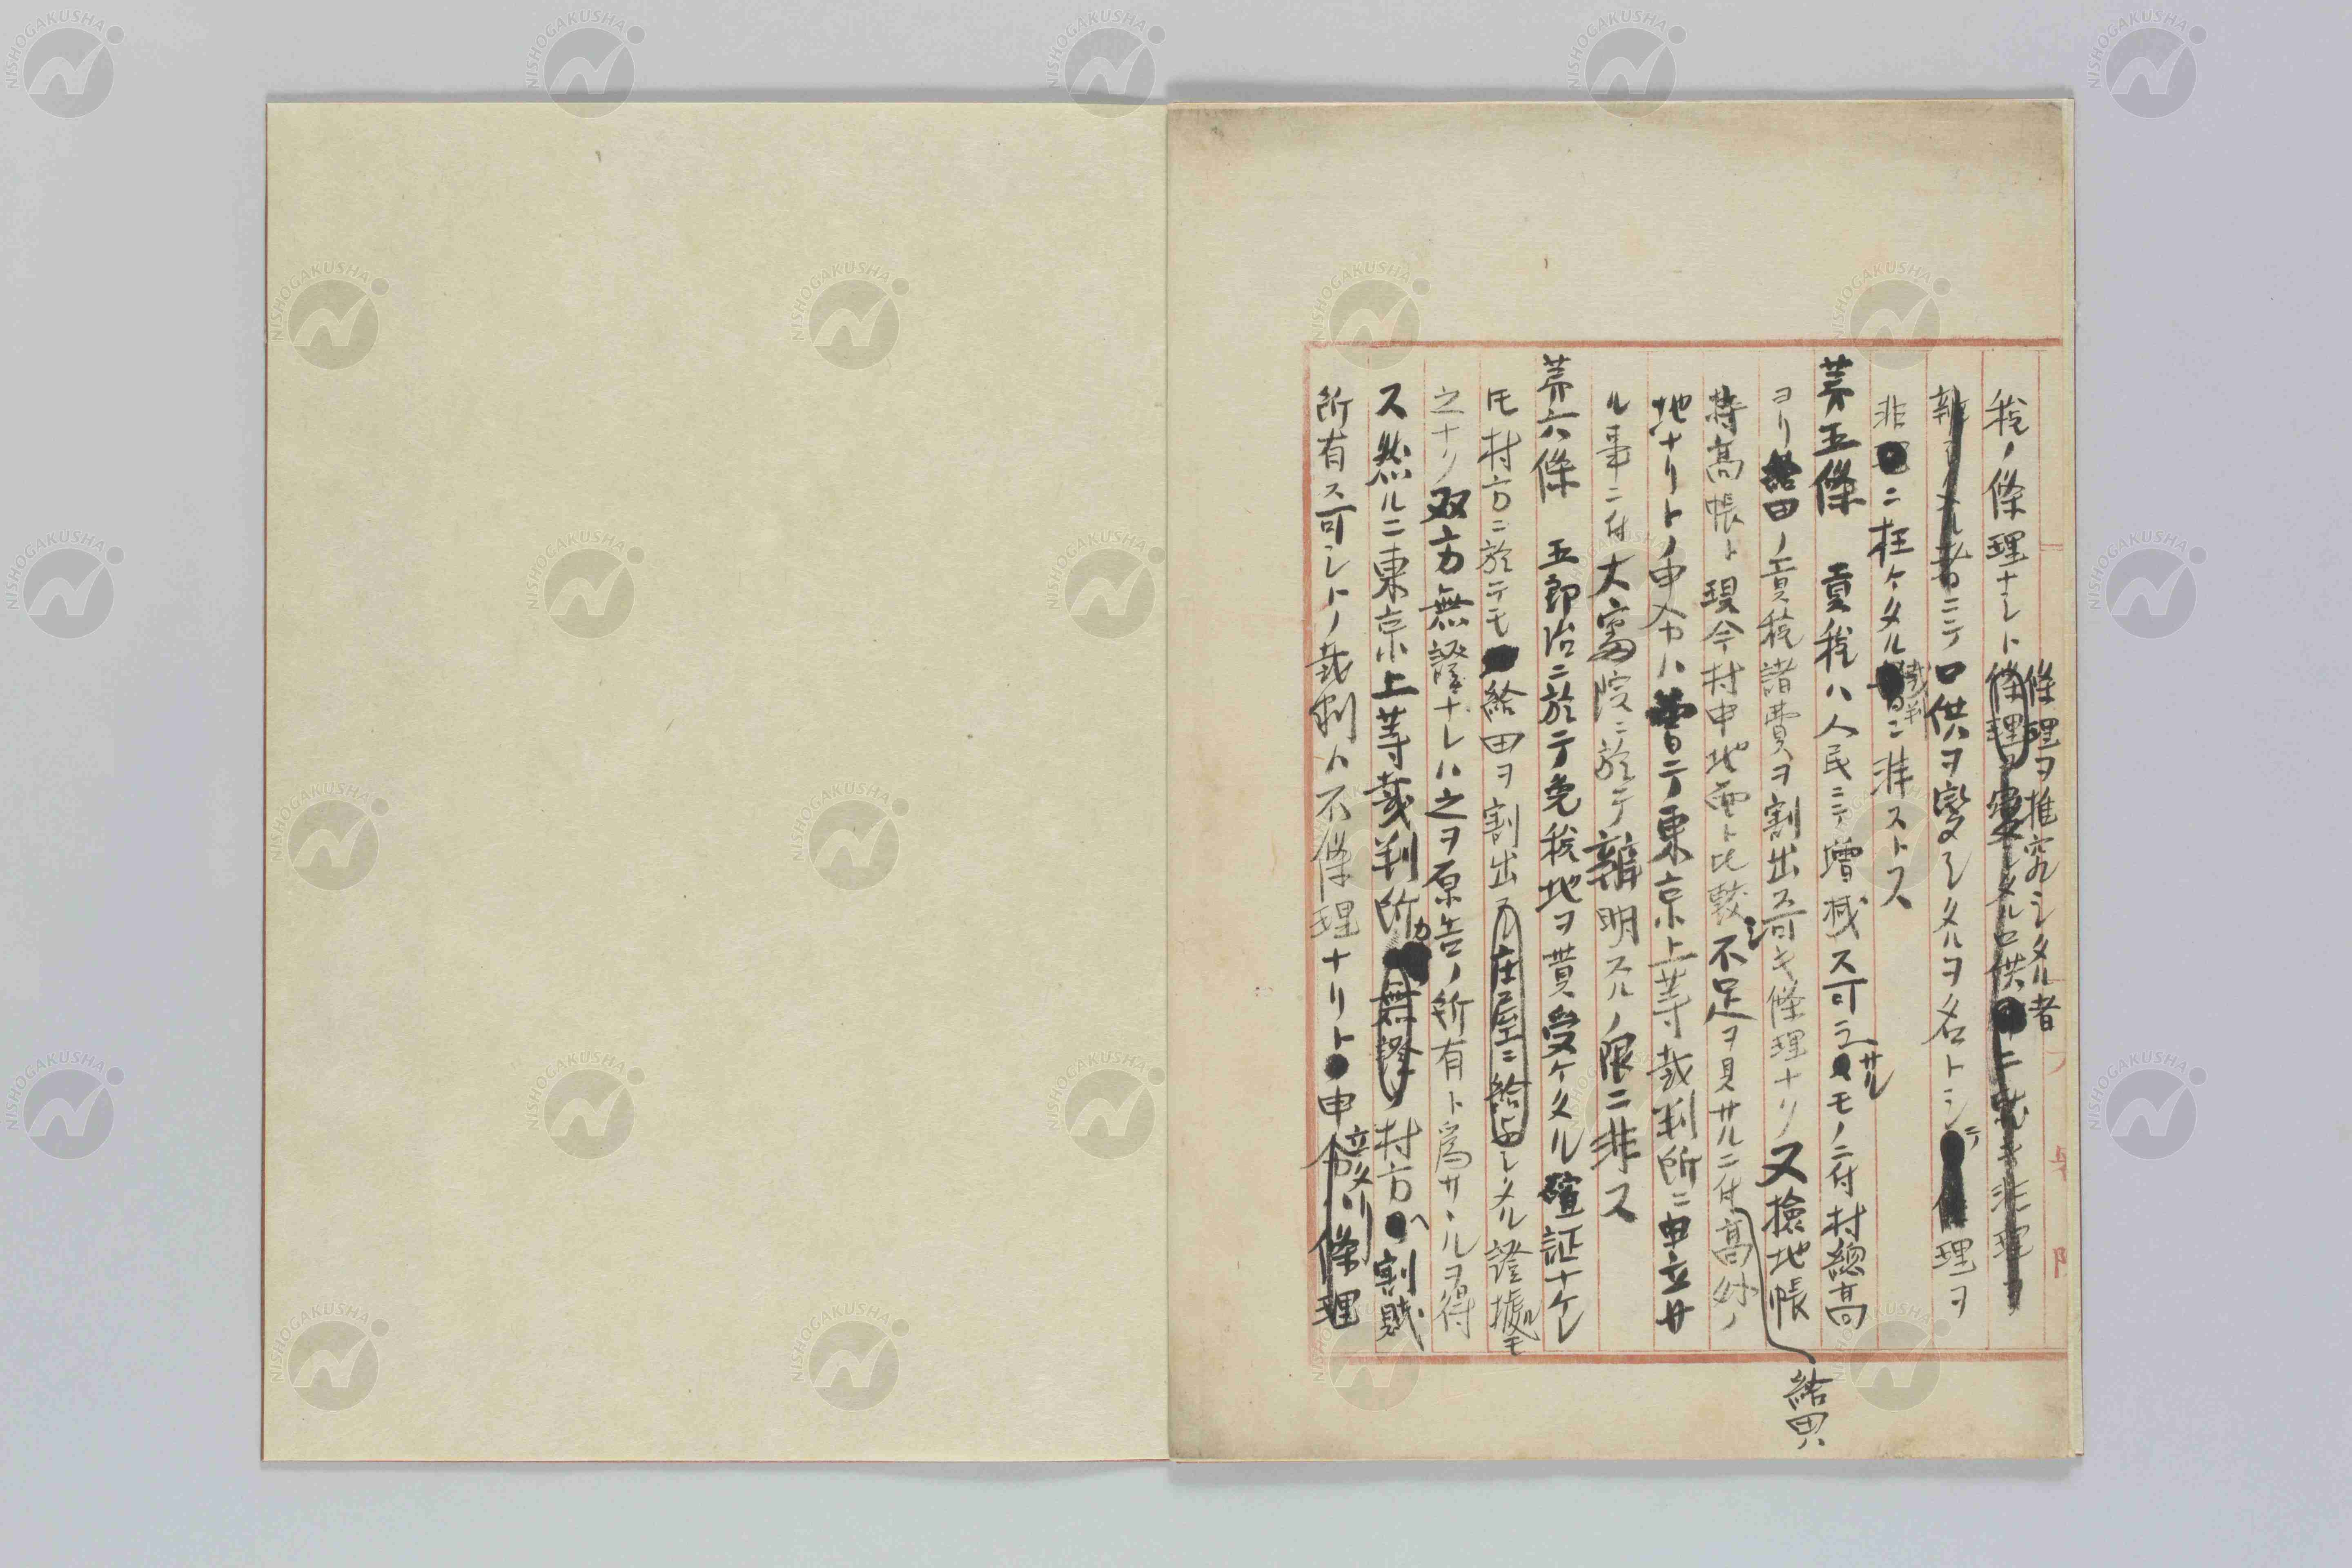 税ノ條理ナシト條理ヲ推究シタル者
ニテ口供ヲ變シタルヲ名トシテ理ヲ
非ニ枉ケタルニ非ストス
第五條 貢税ハ人民ニテ増減ス可ラサルモノニ付村總高
ヨリ給田ノ貢税諸費ヲ割出ス可キ條理ナリ又撿地帳
持高帳ト現今村中地面ト比較シ不足ヲ見サルニ付給田ハ高外ノ
地ナリトノ申分ハ曽テ東京上等裁判所ニ申立サ
ル事ニ付大審院ニ於テ辯明スルノ限ニ非ス
第六條 五郎治ニ於テ免税地ヲ貰受ケタル確証ナケレ
モ村方ニ於テモ給田ヲ割出シタル證據モ
之ナリ双方無證ナレハ之ヲ原告ノ所有ト為サヽルヲ得
ス然ルニ東京上等裁判所カ村方ヘ割賦
所有ス可シトノ裁判ハ不條理ナリト申立タリ條理
NISHOGAKUSHA